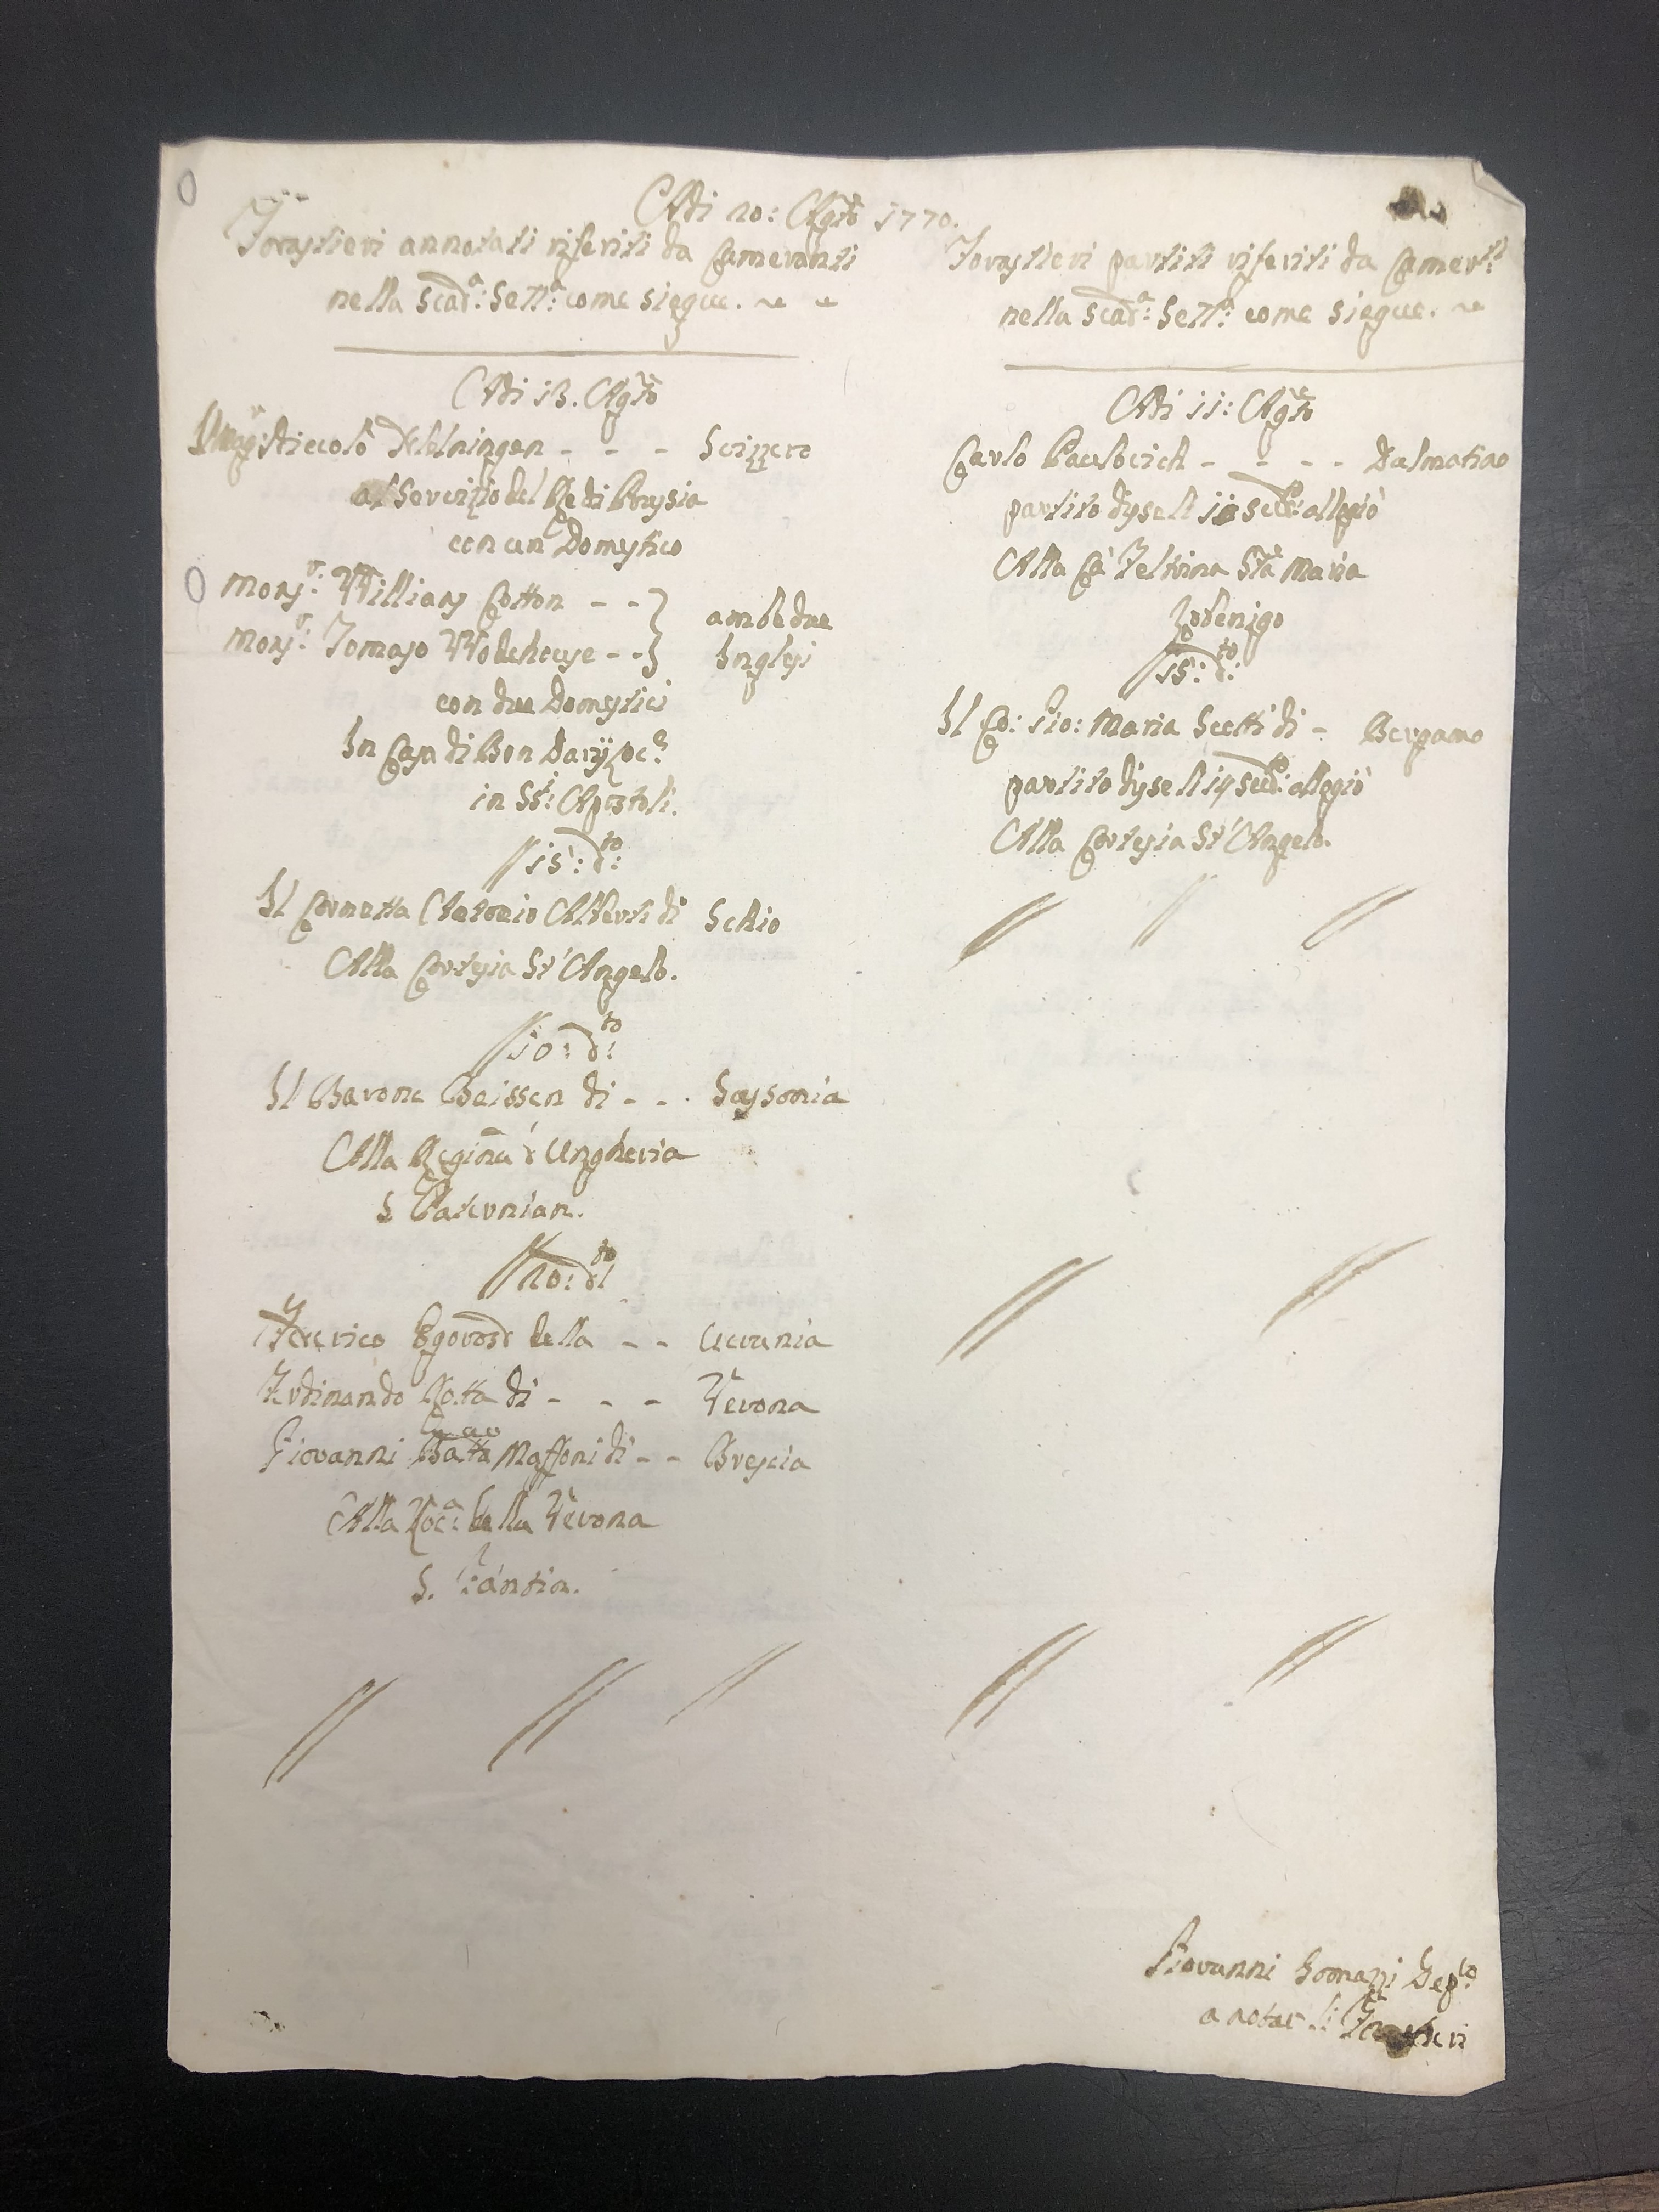 Adi 20: Agto 1770.
Forastieri annotati riferiti da Cameranti
nella scada: Setta: come siegue.
Adi 13. Agto
Niccolò Svizzero
al Servizio del Re di Prusia
con un Domestico
Monsr: William Cotton - - } ambedue
Monsr: Tomaso Wodehouse - - } Inglesi
con due Domestici
In Casa di Bon
in SSti: Apostoli.
15: dto:
Il Cornetta Antonio Alberti di Schio
Alla Cortesia St' Angelo.
Il Barone Beissen di - - . Sassonia
Alla Regina d'Ungheria
S Paternian.
20: dto:
Federico della - - Ucrania
Ferdinando Rotta di - - - Verona
Giovanni Batta Maffoni di - - Brescia
Alla Loca: della Verona
S. Fantin.
Forastieri partiti riferiti da Camerti:
nella scada: Setta: come siegue.
Adi 11: Agto
Carlo Paulovich - - - - Dalmatino
partito disse li secdo: allogiò
Alla Ca' Feltrina Sta Maria
Zobenigo
15: dto:
Il Co: Gio: Maria Scotti di - Bergamo
partito disse li 14 secdo: allogiò
Alla Cortesia St' Angelo.
Giovanni Gomazzi Depto:
a notar li Forastieri